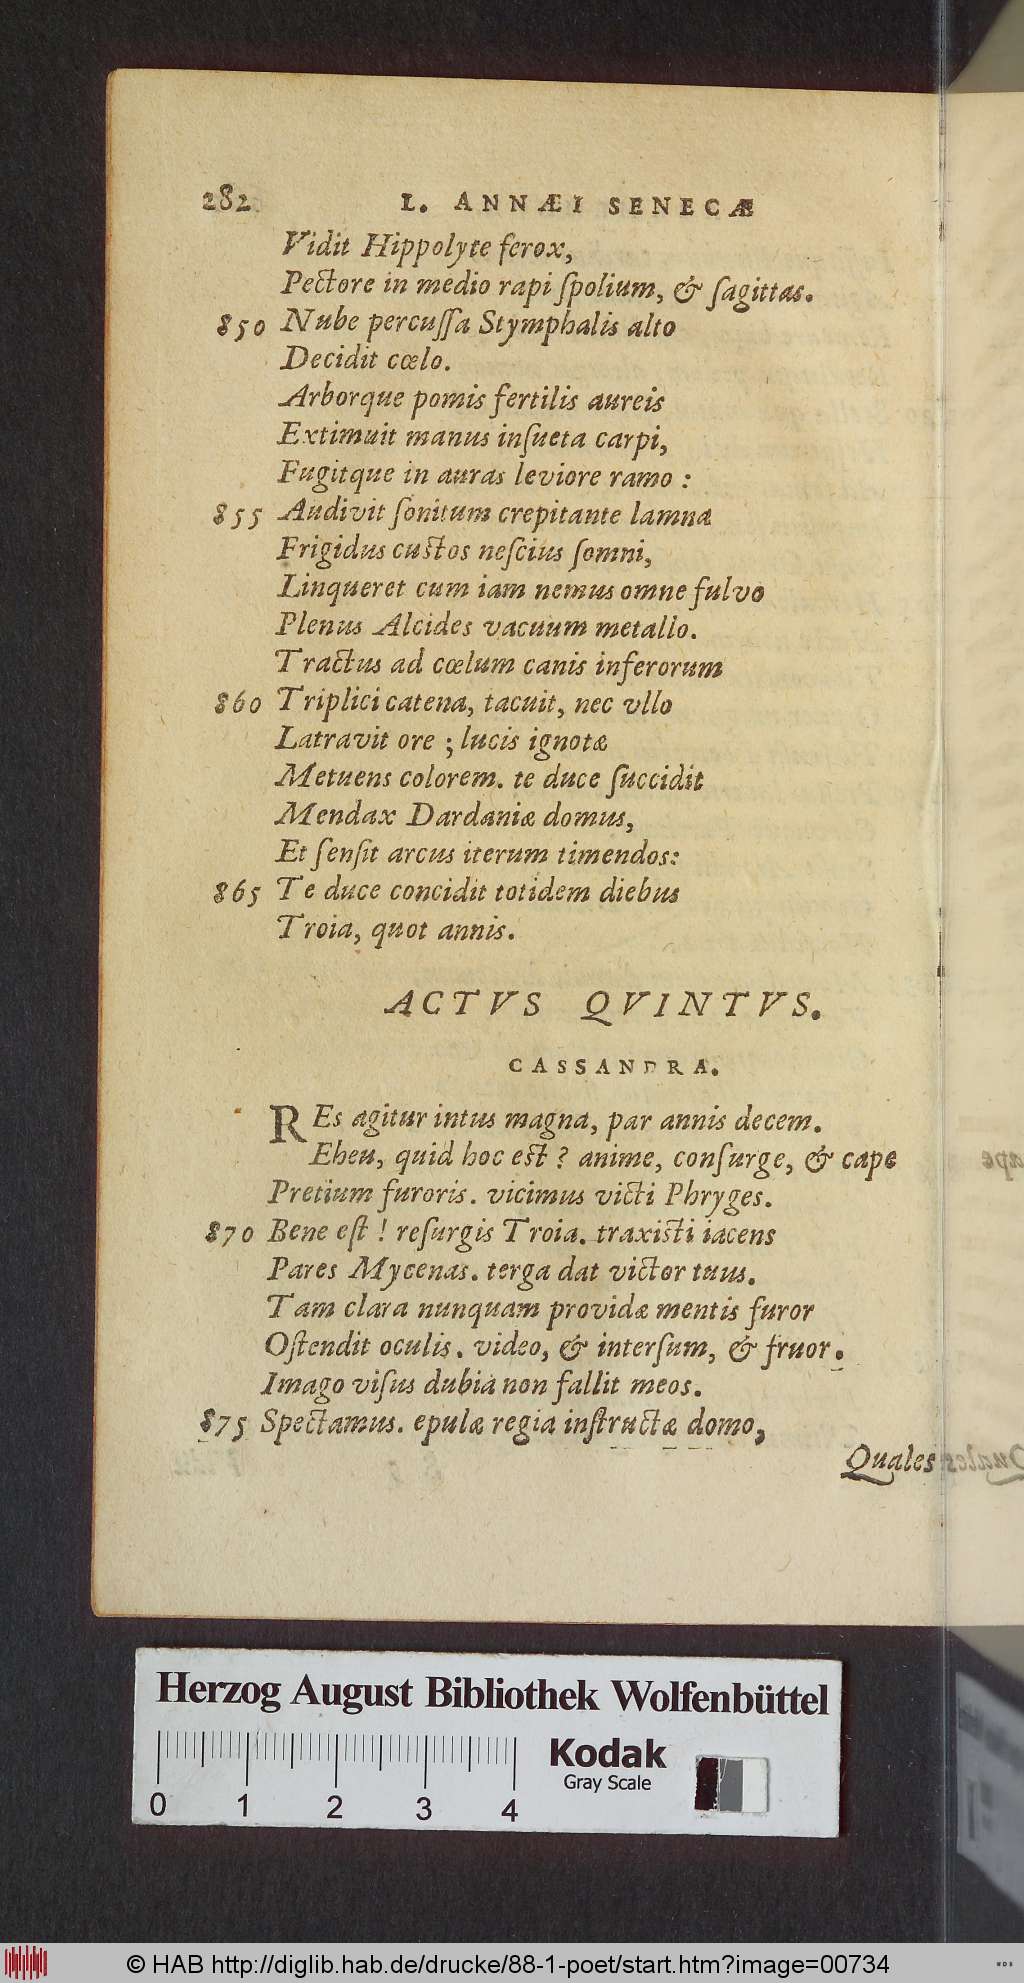 282 L. ANNÆI SENECÆ
Vidit Hippolyte ferox,
Pectore in medio rapi ſpolium, & ſagittas.
850 Nube percuſſa Stymphalis alto
Decidit cœlo.
Arborque pomis fertilis aureis
Extimuit manus inſueta carpi,
Fugitque in auras leviore ramo :
855 Audivit ſonitum crepitante lamna
Frigidus custos neſcius ſomni,
Linqueret cum iam nemus omne fulvo
Plenus Alcides vacuum metallo.
Tractus ad cœlum canis inferorum
860 Triplici catena, tacuit, nec vllo
Latravit ore ; lucis ignotæ
Metuens colorem. te duce ſuccidit
Mendax Dardaniæ domus,
Et ſenſit arcus iterum timendos:
865 Te duce concidit totidem diebus
Troia, quot annis.
ACTVS QVINTVS.
CASSANDRA.
REs agitur intus magna, par annis decem.
Eheu, quid hoc est ? anime, conſurge, & cape
Pretium furoris. vicimus victi Phryges.
870 Bene eſt ! reſurgis Troia. traxisti iacens
Pares Mycenas. terga dat victor tuus.
Tam clara nunquam providæ mentis furor
Oſtendit oculis. video, & interſum, & fruor.
Imago viſus dubia non fallit meos.
875 Spectamus. epulæ regia inſtructæ domo,
Quales
Herzog August Bibliothek Wolfenbüttel
Kodak
Gray Scale
0 1 2 3 4
© HAB http://diglib.hab.de/drucke/88-1-poet/start.htm?image=00734